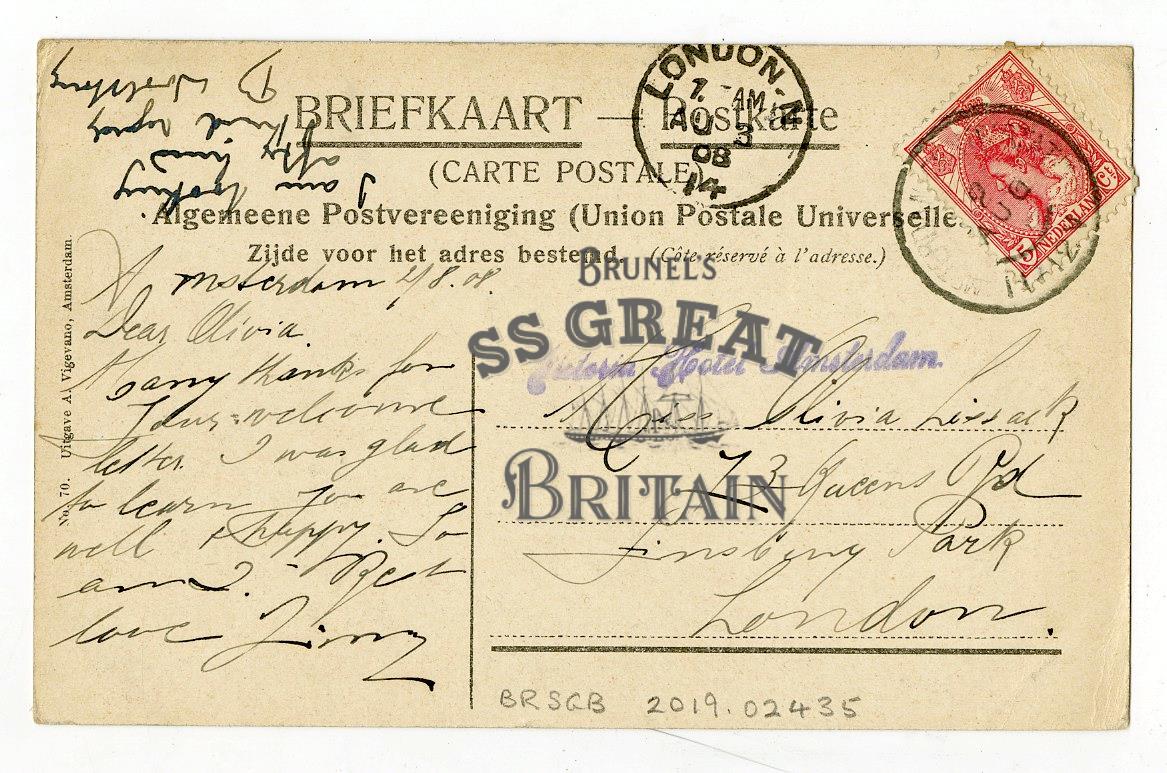 BRIEFKAART — Postkarte
(CARTE POSTALE)
Algemeene Postvereeniging (Union Postale Universelle
Zijde voor het adres bestemd. (Côté réservé à l'adresse.)
LONDON · N
AM
AU 3
08
14
NEDERLAND
5
I am looking
after him
Kind regards
No. 70. Uitgave A. Vigevano, Amsterdam
Amsterdam 2/8.08.
Dear Olivia
Many thanks for
your welcome
letter. I was glad
to learn you are
well & happy. So
am I. Best
love
Victoria Hotel Amsterdam.
Miss Olivia Lissack
73 Queens Rd
Finsbury Park
London.
BRUNEL'S
SS GREAT
BRITAIN
BRSGB 2019.02435